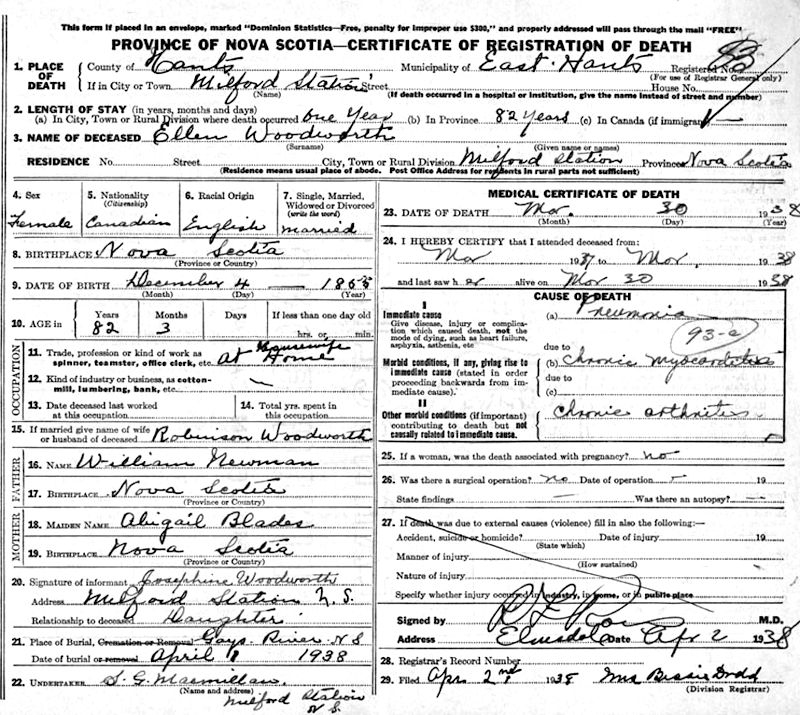 This form if placed in an envelope, marked "Dominion Statistics—Free, penalty for improper use $300," and properly addressed will pass through the mail "FREE"
PROVINCE OF NOVA SCOTIA—CERTIFICATE OF REGISTRATION OF DEATH
1. PLACE OF DEATH
County of Hants Municipality of East Hants Registered No.
(For use of Registrar General only)
If in City or Town Milford Station Street House No.
(Name) (If death occurred in a hospital or institution, give the name instead of street and number)
2. LENGTH OF STAY (in years, months and days)
(a) In City, Town or Rural Division where death occurred one Year (b) In Province 82 Years (c) In Canada (if immigrant)
3. NAME OF DECEASED Ellen Woodworth
(Surname) (Given name or names)
RESIDENCE No. Street City, Town or Rural Division Milford Station Province Nova Scotia
(Residence means usual place of abode. Post Office Address for residents in rural parts not sufficient)
4. Sex
Female
5. Nationality
(Citizenship)
Canadian
6. Racial Origin
English
7. Single, Married, Widowed or Divorced
(write the word)
married
8. BIRTHPLACE Nova Scotia
(Province or Country)
9. DATE OF BIRTH December 4 — 185
(Month) (Day) (Year)
10. AGE in
Years Months Days If less than one day old
82 3 hrs. or min.
OCCUPATION
11. Trade, profession or kind of work as Housewife
spinner, teamster, office clerk, etc. at Home
12. Kind of industry or business, as cotton-
mill, lumbering, bank, etc. —
13. Date deceased last worked
at this occupation
14. Total yrs. spent in
this occupation
15. If married give name of wife
or husband of deceased Robinson Woodworth
FATHER
16. NAME William Newman
17. BIRTHPLACE Nova Scotia
(Province or Country)
MOTHER
18. MAIDEN NAME Abigail Blades
19. BIRTHPLACE Nova Scotia
(Province or Country)
20. Signature of informant Josephine Woodworth
Address Milford Station N.S.
Relationship to deceased Daughter
21. Place of Burial, Cremation or Removal Gays River N S
Date of burial or removal April 1 1938
22. UNDERTAKER S. G. Macmillan
(Name and address) Milford Station
N S.
MEDICAL CERTIFICATE OF DEATH
23. DATE OF DEATH Mar. 30 1938
(Month) (Day) (Year)
24. I HEREBY CERTIFY that I attended deceased from:
Mar 1937 to Mar, 1938
and last saw her alive on Mar 30 1938
CAUSE OF DEATH
I
Immediate cause
Give disease, injury or complication which caused death, not the mode of dying, such as heart failure, asphyxia, asthenia, etc
(a) Pneumonia
93-c
due to
Morbid conditions, if any, giving rise to immediate cause (stated in order proceeding backwards from immediate cause).
(b) Chronic myocarditis
due to
(c)
II
Other morbid conditions (if important) contributing to death but not causally related to immediate cause.
Chronic arthritis
25. If a woman, was the death associated with pregnancy? no
26. Was there a surgical operation? no Date of operation — 19
State findings — Was there an autopsy? —
27. If death was due to external causes (violence) fill in also the following:—
Accident, suicide or homicide? Date of injury 19
(State which)
Manner of injury
(How sustained)
Nature of injury
Specify whether injury occurred in industry, in home, or in public place
Signed by M.D.
Address Elmsdale Date Apr 2 1938
28. Registrar's Record Number
29. Filed Apr. 2nd 1938 Mrs Bessie Dodd
(Division Registrar)